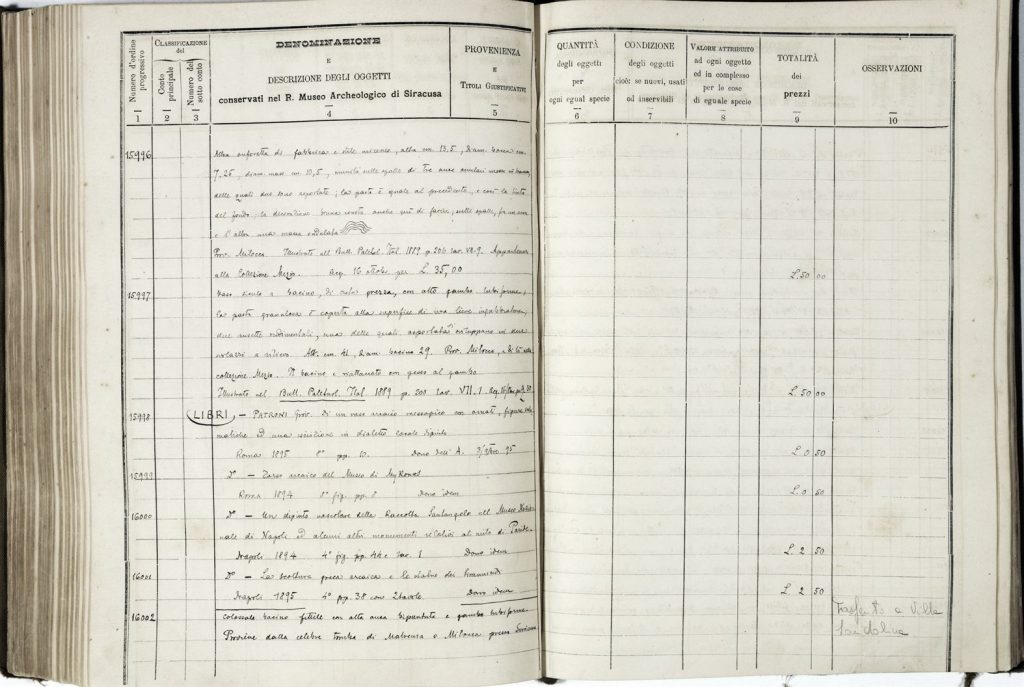 Numero d'ordine progressivo
CLASSIFICAZIONE del
Conto principale
Numero del sotto conto
DENOMINAZIONE
E
DESCRIZIONE DEGLI OGGETTI
conservati nel R. Museo Archeologico di Siracusa
PROVENIENZA
E
TITOLI GIUSTIFICATIVI
1 2 3 4 5
QUANTITÀ
degli oggetti
per
ogni egual specie
CONDIZIONE
degli oggetti
cioè: se nuovi, usati
od inservibili
VALORE ATTRIBUITO
ad ogni oggetto
ed in complesso
per le cose
di eguale specie
TOTALITÀ
dei
prezzi
OSSERVAZIONI
6 7 8 9 10
15996 Altra anforetta di fabbrica e stile miceneo, alta cm 13,5, diam. bocca cm.
7.25, diam. mass cm 10,5, munita sulle spalle di tre anse
delle quali due sono riportate; la pasta è eguale al precedente, e con la tinta
del fondo; la decorazione bruna
e l'altra una massa ondulata
Prov. Milocca Illustrato nel Bull. Paletnol. Ital. 1889 p. 206 tav. VII. 9. Appartenne
alla Collezione Mezio. Acq. 16 per L. 35,00
L. 50 00
15997 Vaso a bacino, di pezza, con alto gambo tubiforme;
la pasta granulosa è coperta alla superficie di una lieve ingubbiatura,
due ansette rudimentali, una delle quali asportata, si sviluppano in due
a rilievo. Alt. cm. 41, Diam. bacino 29. Prov. Milocca, e di là alla
collezione Mezio. Il bacino è riattaccato con gesso al gambo
Illustrato nel Bull. Paletnol. Ital. 1889 p. 208 tav. VII. 1.
L. 50 00
15998 LIBRI – PATRONI Giov. Di un vaso arcaico messapico con ornati, figure
ed una iscrizione in dialetto locale dipinte
Roma 1895 8° pp. 10. Dono dell'A. 95
L. 0 50
15999 D° – Vaso arcaico del Museo di Mykonos
Roma 1894 8° fig. pp. 8 Dono idem
L. 0 50
16000 D° – Un dipinto vascolare della Raccolta Santangelo nel Museo Nazio-
nale di Napoli ed alcuni altri monumenti relativi al mito di
Napoli 1894 4° fig. pp. 44 e tav. 1 Dono idem
L. 2 50
16001 D° – La scultura greca arcaica e le statue dei tirannicidi
Napoli 1895 4° pp. 38 con 2 tavole. Dono idem
L. 2 50
16002 Colossale bacino fittile con alta ansa e gambo tubiforme
Proviene dalla celebre tomba di Matrensa o Milocca presso Siracusa
Trasferito a Villa
Landolina